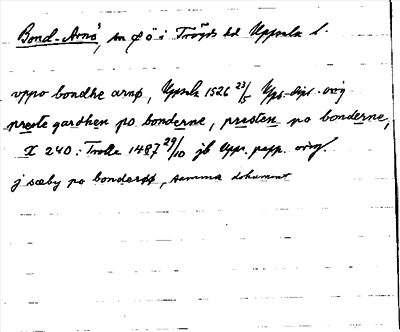 Bond-Arnö, en ö i Trögds hd Uppsala l.
uppo bondhe arnø, Upsala 1526 23/5 Ups. dipl. orig
preste gardhen po bonderne, presten po bonderne,
X 240: Trolle 1487 29/10 jb Upps. papp. orig.
j sæby po bonderøø, samma dokument